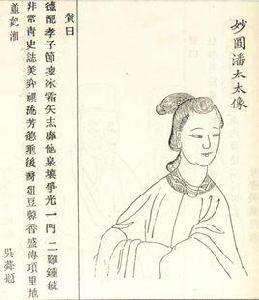 妙圓潘太太像
贊曰
德配孝子節凛冰霜矢志靡他泉壤爭光一門二難鍾毓
非常青史誌美奕禩流芳懿垂後裔俎豆馨香盛傳項里地
湘
吳題